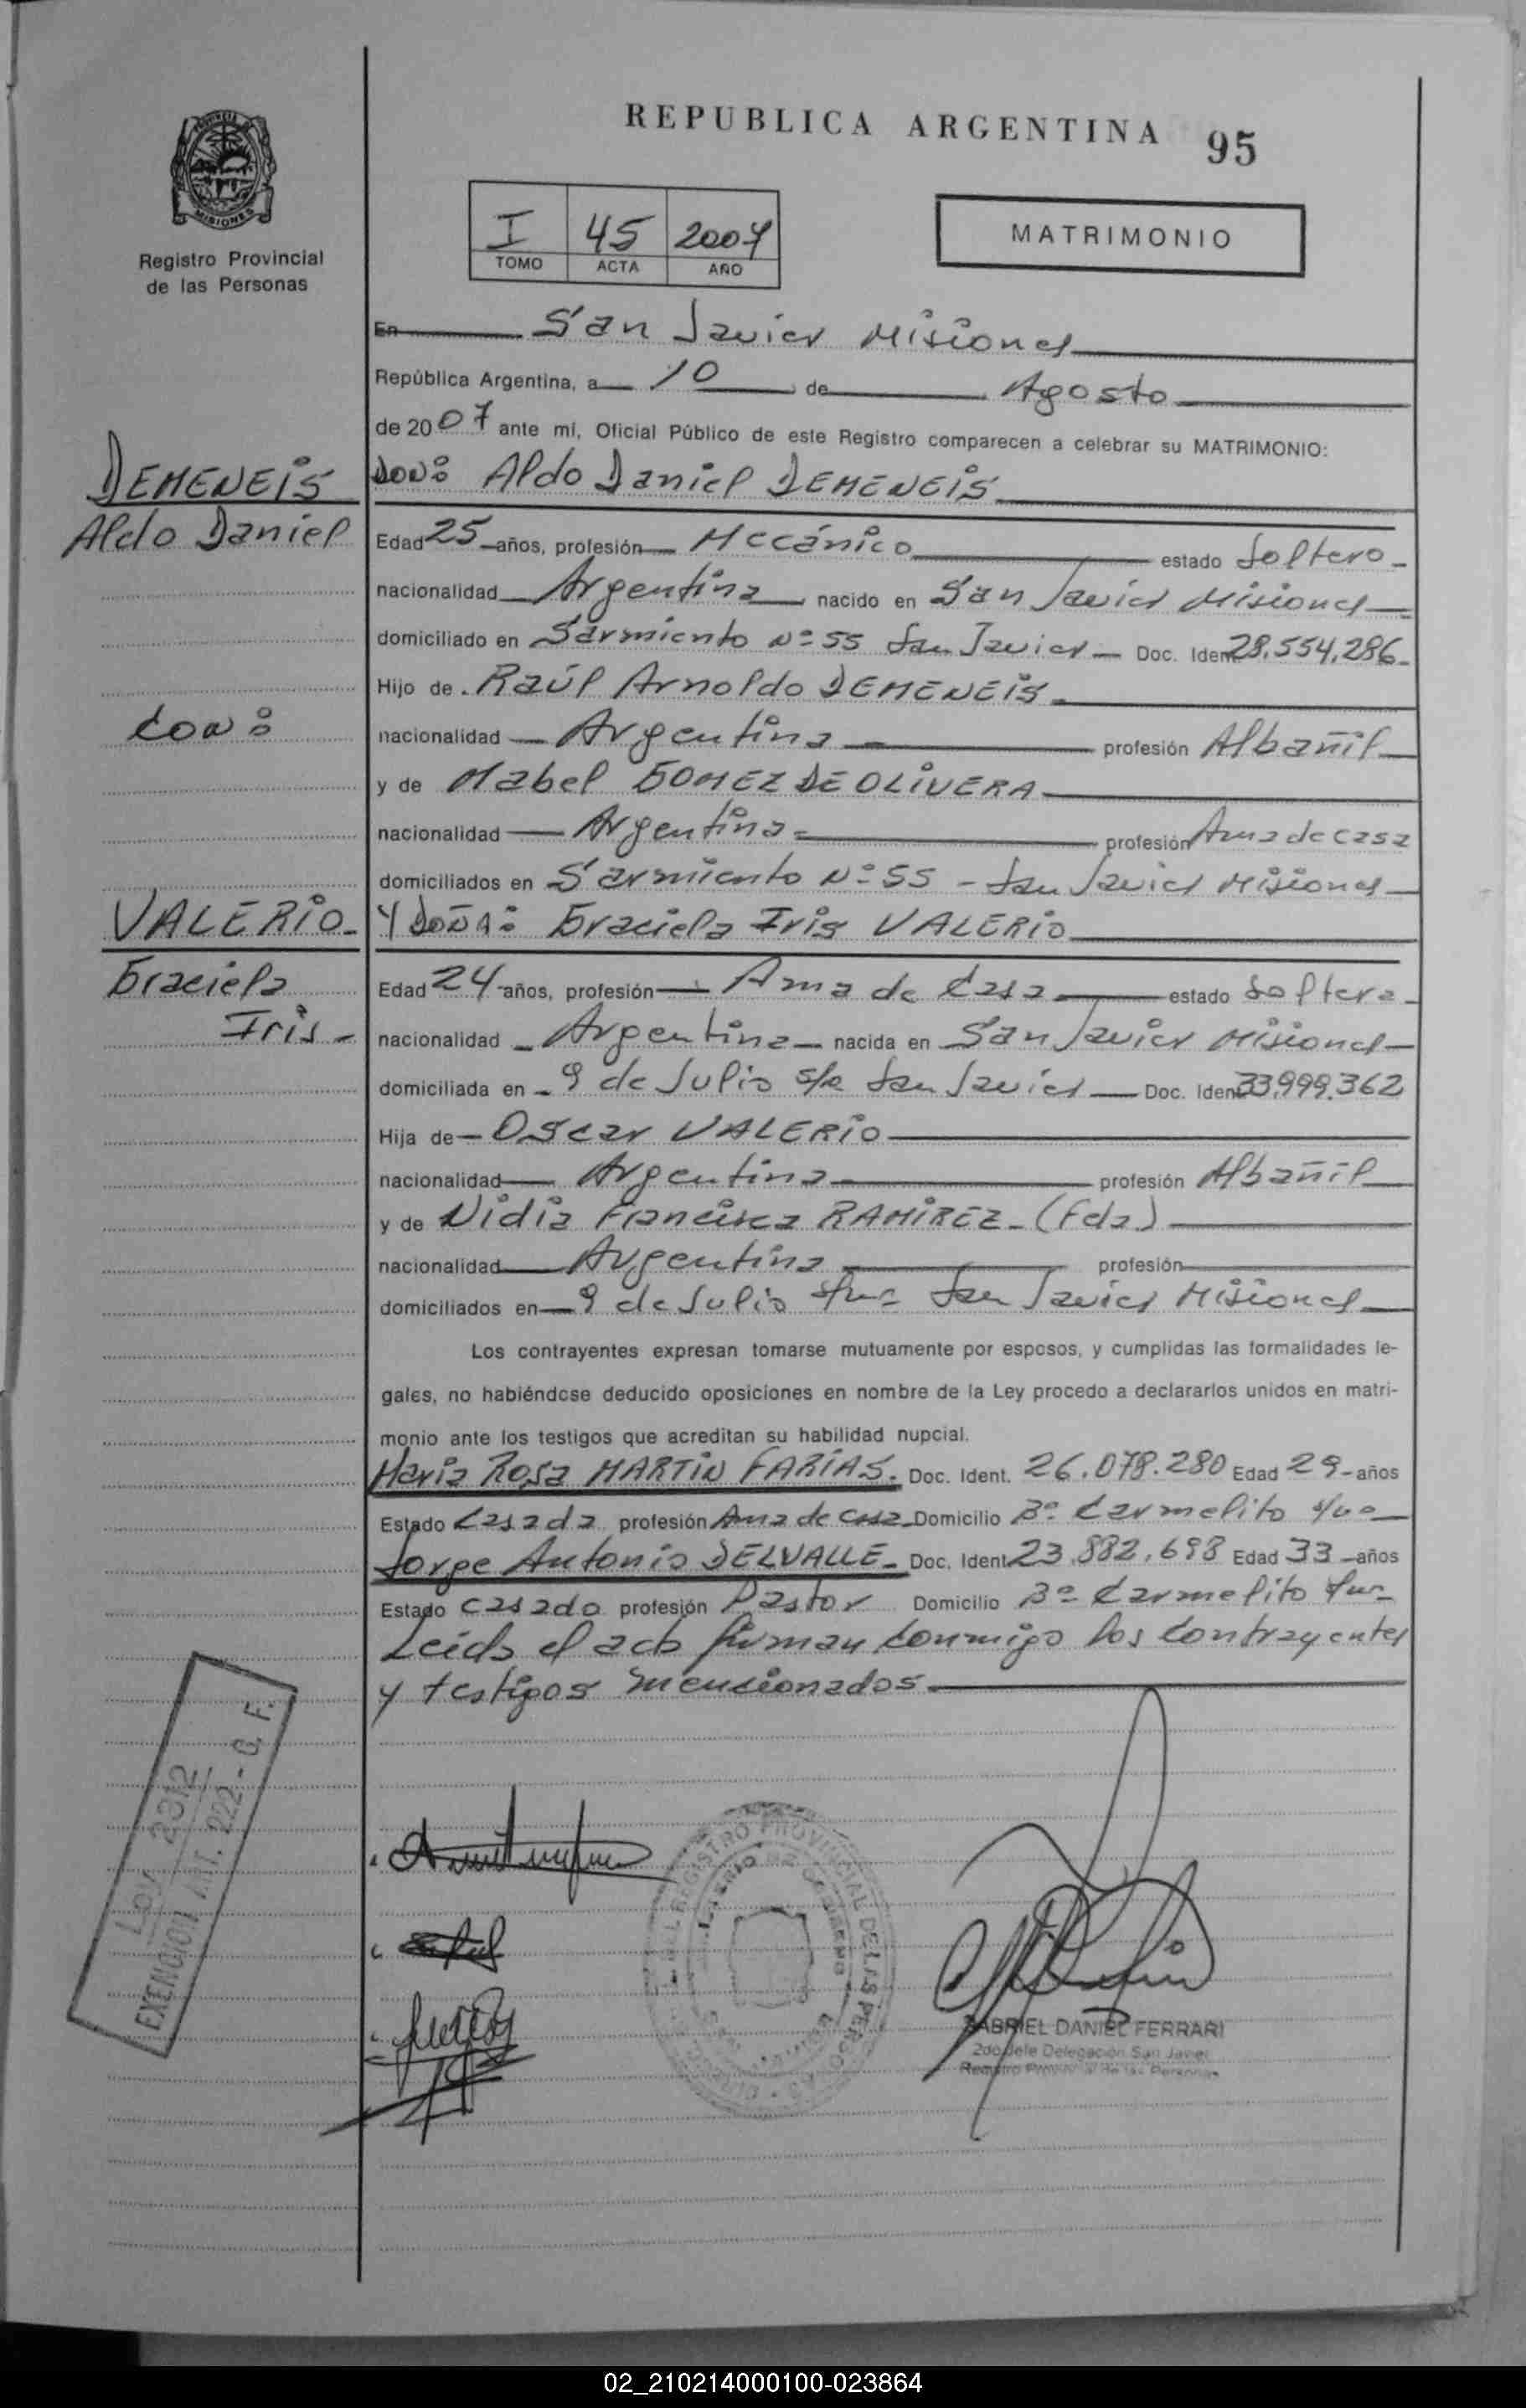 REPUBLICA ARGENTINA 95
MISIONES
Registro Provincial
de las Personas
I 45 2007
TOMO ACTA AÑO
MATRIMONIO
En San Javier Misiones
República Argentina, a 10 de Agosto
de 2007 ante mí, Oficial Público de este Registro comparecen a celebrar su MATRIMONIO:
DEMENEIS
Aldo Daniel
DON: Aldo Daniel DEMENEIS
Edad 25 años, profesión Mecánico estado Soltero
nacionalidad Argentina nacido en San Javier Misiones
domiciliado en Sarmiento Nº 55 San Javier Doc. Iden 28.554.286
Hijo de Raúl Arnoldo DEMENEIS
con:
nacionalidad Argentina profesión Albañil
y de Mabel GOMEZ DE OLIVERA
nacionalidad Argentina profesión Ama de casa
domiciliados en Sarmiento Nº 55 - San Javier Misiones
VALERIO
Graciela
Iris
Y DOÑA: Graciela Iris VALERIO
Edad 24 años, profesión Ama de Casa estado Soltera
nacionalidad Argentina nacida en San Javier Misiones
domiciliada en 9 de Julio San Javier Doc. Iden 33.999.362
Hija de Oscar VALERIO
nacionalidad Argentina profesión Albañil
y de Nidia Francisca RAMIREZ (Fda)
nacionalidad Argentina profesión
domiciliados en 9 de Julio San Javier Misiones
Los contrayentes expresan tomarse mutuamente por esposos, y cumplidas las formalidades le-
gales, no habiéndose deducido oposiciones en nombre de la Ley procedo a declararlos unidos en matri-
monio ante los testigos que acreditan su habilidad nupcial.
Maria Rosa MARTIN FARIAS. Doc. Ident. 26.078.280 Edad 29 años
Estado Casada profesión Ama de Casa Domicilio Bº Carmelito
Jorge Antonio DELVALLE Doc. Ident 23.882.698 Edad 33 años
Estado Casado profesión Pastor Domicilio Bº Carmelito
Leida el acta firman conmigo los contrayentes
y testigos mencionados.
LEY 2312
EXENCION ART. 222 - C. F.
REGISTRO PROVINCIAL DE LAS PERSONAS
GABRIEL DANIEL FERRARI
2do Jefe Delegación San Javier
Registro Provincial de las Personas
02_210214000100-023864